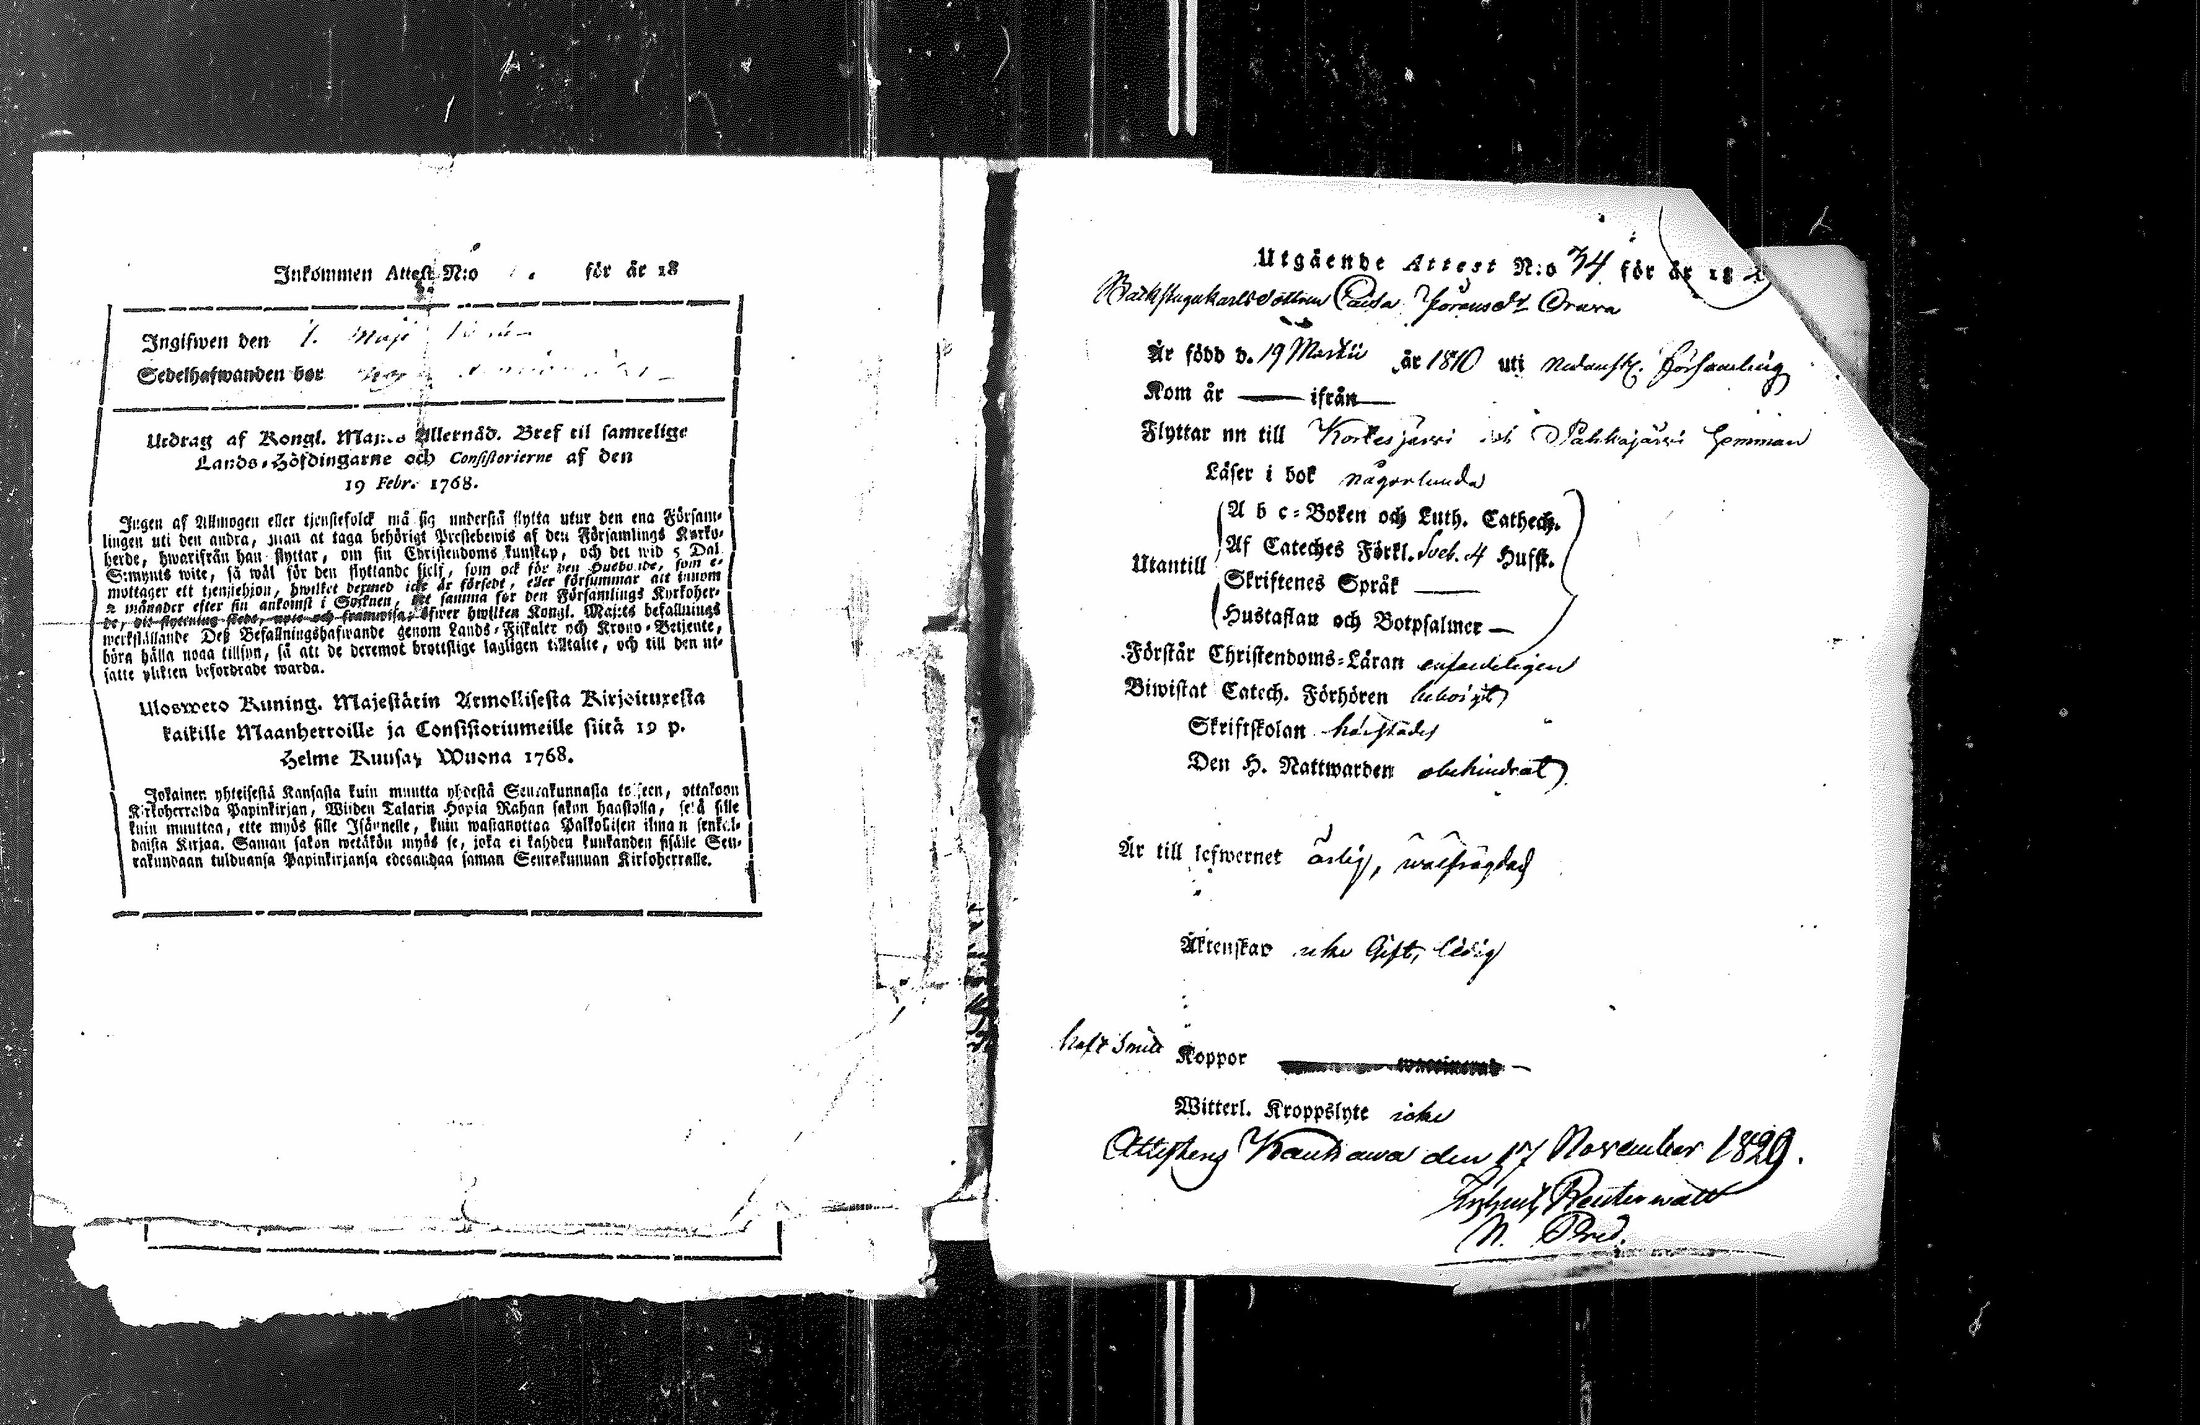 Inkommen Attest N:o för år 18
Ingifwen den 1. Maji
Sedelhafwanden bor
Utdrag af Kongl. Maj:ts Allernåd. Bref til samtelige
Lands-Höfdingarne och Consistorierne af den
19 Febr. 1768.
Ingen af Allmogen eller tjenstefolck må sig understå flytta utur den ena Försam-
lingen uti den andra, utan at taga behörigt Prestebewis af den Församlings Kyrko-
herde, hwarifrån han flyttar, om sin Christendoms kunskap, och det wid 5 Dal.
S:mynts wite, så wäl för den flyttande sjelf, som ock för den Husbonde, som e-
mottager ett tjenstehjon, hwilket dermed icke är försedt, eller försummar att innom
2 månader efter sin ankomst i Socknen, det samma för den Församlings Kyrkoher-
de, öfwer hwilken Kongl. Maj:ts befallnings
werkställande Deß Befallningshafwande genom Lands-Fiskaler och Krono-Betjente,
böra hålla noga tillsyn, så att de deremot brottslige lagligen tilltalte, och till den ut-
satte plikten befordrade warda.
Ulosweto Kuning. Majestätin Armollisesta Kirjoituxesta
kaikille Maanherroille ja Consistoriumeille siitä 19 p.
Helme Kuusa Wuona 1768.
Jokainen yhteisestä Kansasta kuin muutta yhdestä Seurakunnasta toiseen, ottakoon
Kirkoherralda Papinkirjan, Wiiden Talarin Hopia Rahan sakon haastolla, sekä sille
kuin muuttaa, ette myös sille Isännelle, kuin wastanottaa Palkolisen ilman senkal-
daista Kirjaa. Saman sakon wetäkön myös se, joka ei kahden kuukauden sisälle Seu-
rakundaan tulduansa Papinkirjansa edesandaa saman Seurakunnan Kirkoherralle.
Utgående Attest N:o 34 för år 18
Caisa Orawa
Är född d. 19 Martii år 1810 uti Församling
Kom år — ifrån —
Flyttar nu till Kortesjärvi och Pahkajärvi hemman
Läser i bok någorlunda
Utantill
A b c-Boken och Luth. Cathech.
Af Cateches Förkl. Sveb. 4 Hufst.
Skriftenes Språk —
Hustaflan och Botpsalmer —
Förstår Christendoms-Läran enfaldeligen
Biwistat Catech. Förhören behörigt
Skriftskolan härstädes
Den H. Nattwarden obehindrat
Är till lefwernet ärlig, wälfrägdad
Äktenskap icke Gift, ledig
haft Små Koppor —
Witterl. Kroppslyte icke
Attesterar Kauhawa den 17 November 1829.
Reuterwall
N. Pred.